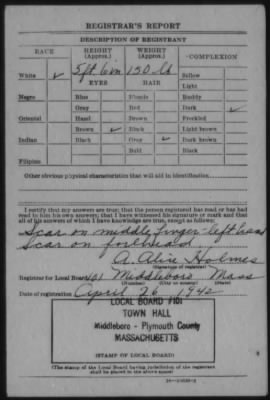 REGISTRAR'S REPORT
DESCRIPTION OF REGISTRANT
RACE HEIGHT (Approx.) WEIGHT (Approx.) COMPLEXION
5 ft. 6 in 150 lb
White ✓ EYES HAIR Sallow
Light
Negro Blue Blonde Ruddy
Gray Red Dark ✓
Oriental Hazel Brown Freckled
Brown ✓ Black Light brown
Indian Black Gray ✓ Dark brown
Bald Black
Filipino
Other obvious physical characteristics that will aid in identification
I certify that my answers are true; that the person registered has read or has had
read to him his own answers; that I have witnessed his signature or mark and that
all of his answers of which I have knowledge are true, except as follows:
Scar on middle finger - left hand
Scar on forehead
A. Alice Holmes
(Signature of registrar)
Registrar for Local Board 101 Middleboro Mass
(Number) (City or county) (State)
Date of registration April 26 1942
LOCAL BOARD #101
TOWN HALL
Middleboro - Plymouth County
MASSACHUSETTS
(STAMP OF LOCAL BOARD)
(The stamp of the Local Board having jurisdiction of the registrant
shall be placed in the above space)